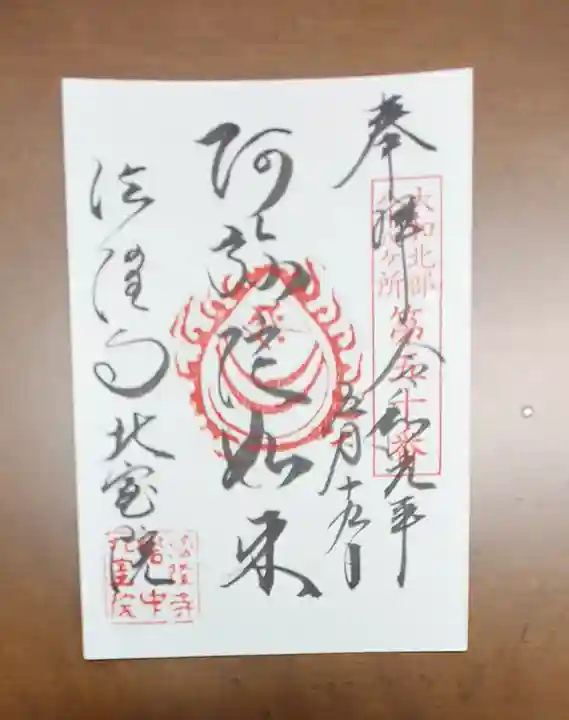 奉拝
大和北部
八十八ヶ所
第五十番
令和元年
五月十九日
阿弥陀如来
法隆寺 北室院
法隆寺
北室院